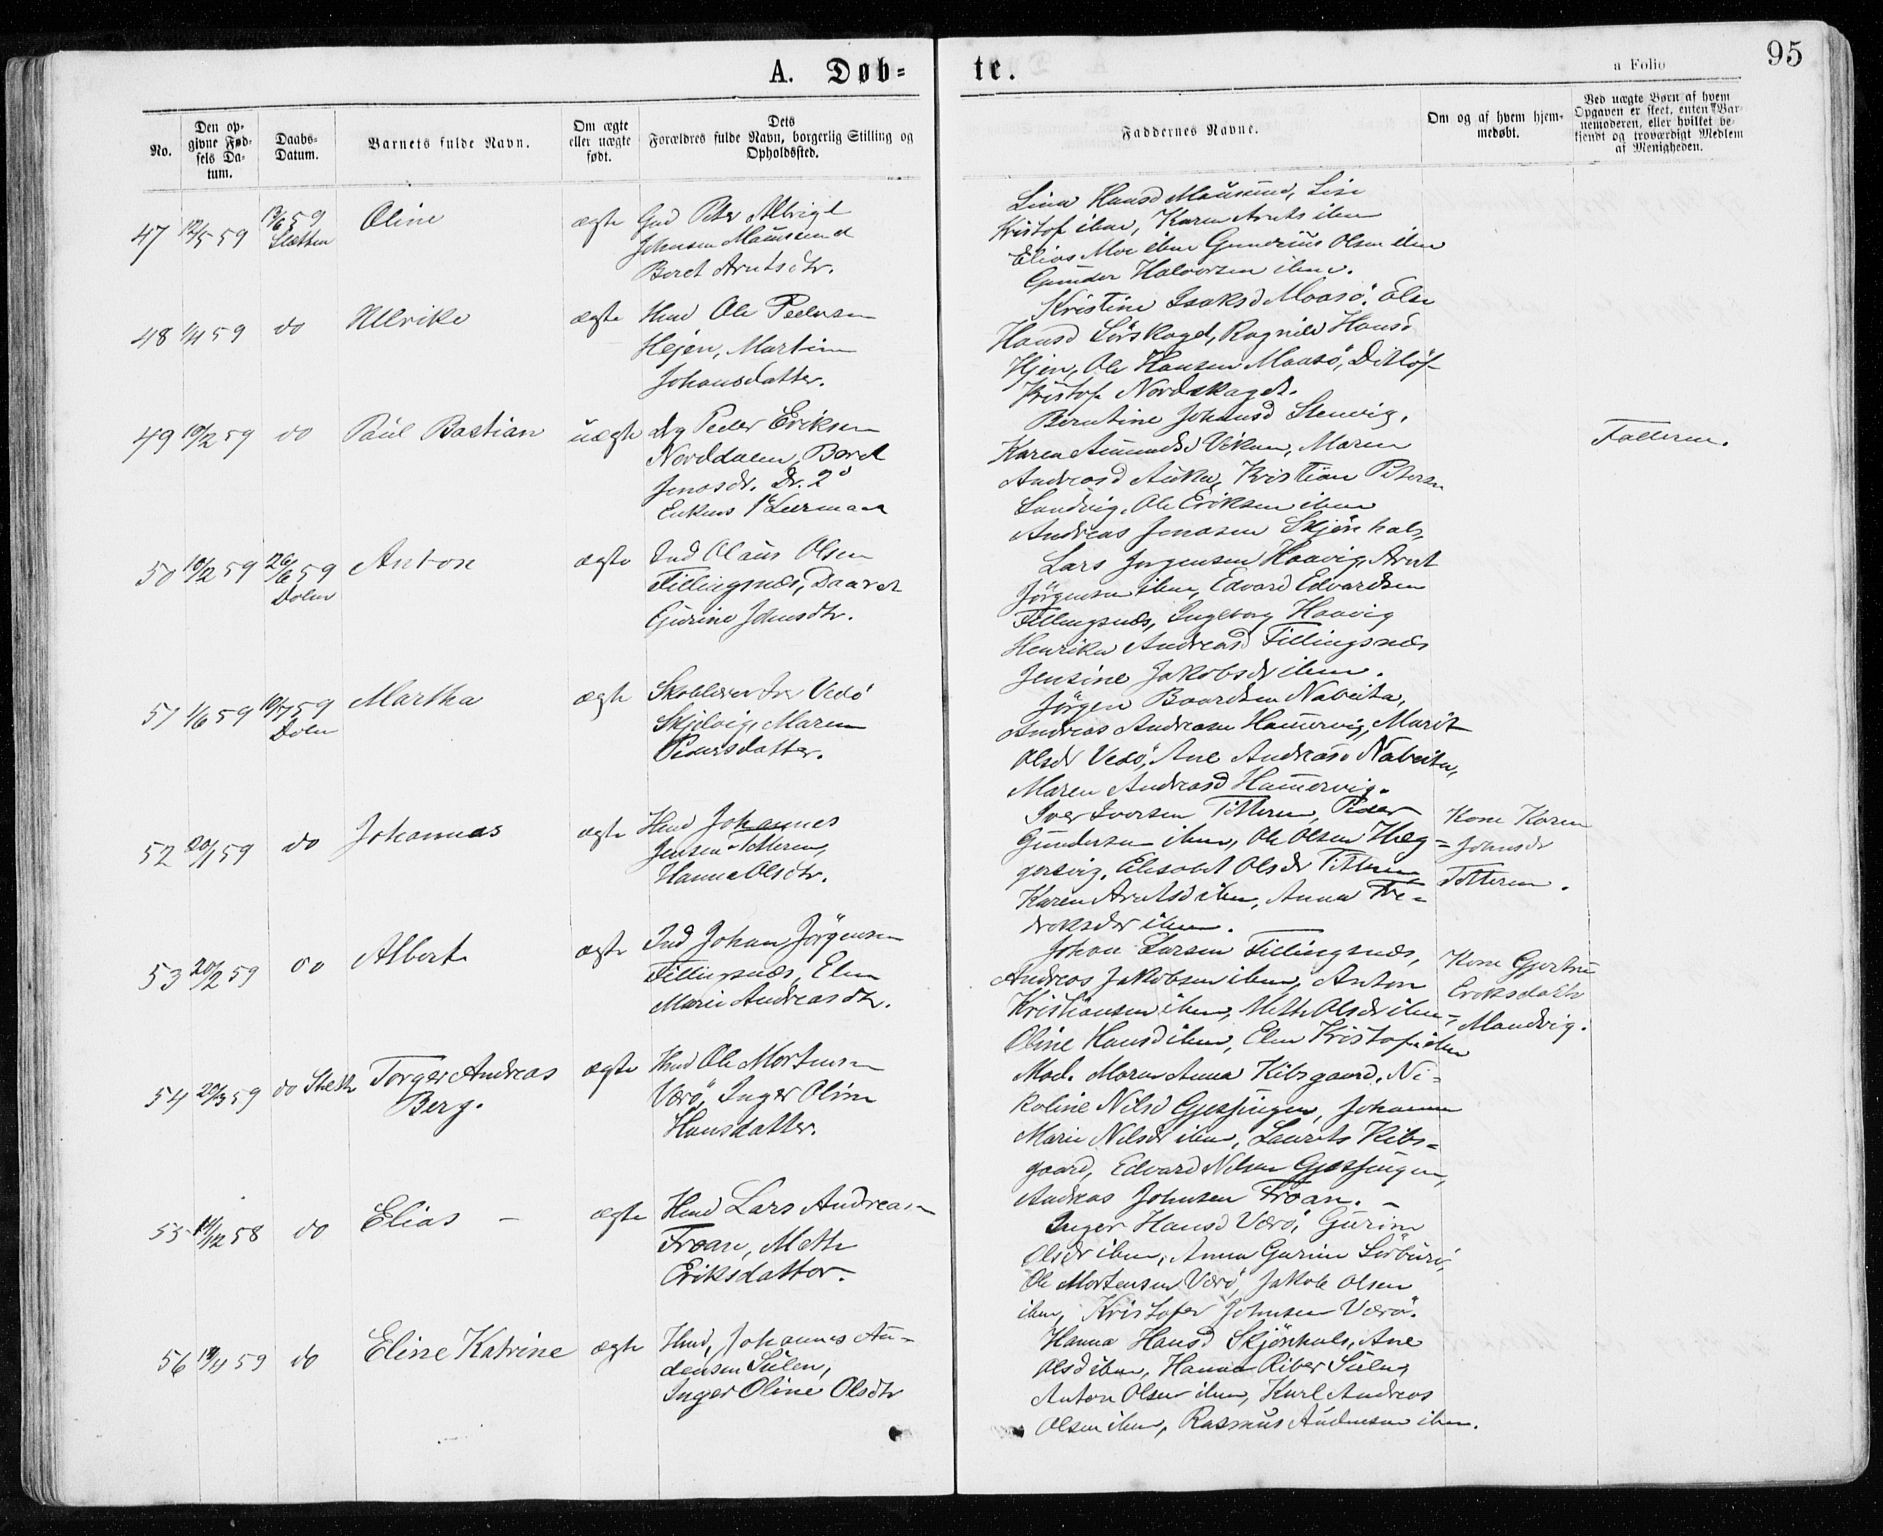 95
A. Døb= te.
a Folio
No.
Den op-
givne Fød-
sels Da-
tum.
Daabs-
Datum.
Barnets fulde Navn.
Om ægte
eller uægte
født.
Dets
Forældres fulde Navn, borgerlig Stilling og
Opholdssted.
Faddernes Navne.
Om og af hvem hjem-
medøbt.
Ved uægte Børn af hvem
Opgaven er skeet, enten Bar-
nemoderen, eller hvilket be-
kjendt og troværdigt Medlem
af Menigheden.
47 12/5 59
Sletten
Oline
ægte
Peter Albrigt
Johnsen Mausund
Beret Arntsdtr.
Lina Hansd Mausund, Lise
Kristof ibm, Karen Arnts ibm
Elias Moe ibm Gunerius Olsen ibm
Gunder Halvorsen ibm.
48 1/4 59
do
Ullrike
ægte
Hmd Ole Pedersen
Hejen, Martin
Johansdatter.
Kristine Isaksd Maasö, Else
Hansd Sörskaget, Ragnild Hansd
Hjen, Ole Hansen Maasö, Ditlöf
Kristof Nordskaget.
49 19/2 59
do
Paul Bastian
uægte
Peder Eriksen
Norddalen, Beret
Jonasdr. Dr. 2d
Enkens 1e Leermaal
Berntine Johansd Stenvig,
Karen Amundsd Viknen, Maren
Andreasd Auka, Kristian Petersen
Sandvig, Ole Eriksen ibm
Andreas Jonasen Skjönhals
Faderen.
50 10/2 59
26/6 59
Dolm
Anton
ægte
Ind Olaus Olsen
Fillingsnæs, Daaret
Gurine Johnsdtr.
Lars Jørgensen Haavig Arnt
Jørgensen ibm, Edvard Edvardsen
Fillingsnæs, Ingeborg Haavig
Henrikke Andreasd Fillingsnæs
Jensine Jakobsdr ibm.
51 1/6 59
10/7 59
Dolm
Martha
ægte
Skolelærer Iver Vedö
Skjelvig, Maren
Pedersdatter.
Jørgen Baardsen Nabeita,
Andreas Andreasen Hamervig, Marit
Olsdr Vedö, Ane Andreasd Nabeita,
Maren Andreasd Hamervig.
52 20/1 59
do
Johannes
ægte
Hmd Johannes
Jensen Titteren,
Hanna Olsdtr.
Iver Iversen Titteren, Peder
Gundersen ibm, Ole Olsen Hæg=
gersvig, Elisabet Olsdr Titteren
Karen Arntsd ibm, Anna Fre=
driksdr ibm.
Kone Karen
Johnsdr
Titteren.
53 20/2 59
do
Albert
ægte
Ind Johan Jørgensen
Fillingsnæs, Elen
Marie Andreasdtr.
Johan Larsen Fillingsnæs,
Andreas Jakobsen ibm, Anton
Kristiansen ibm, Mette Olsdr ibm,
Oline Hansd ibm, Elen Kristof ibm
Kone Gjertru
Eriksdattr
Mandvig.
54 20/3 59
do
Torger Andreas
Berg.
ægte
Hmd Ole Mortensen
Værö, Inger Oline
Hansdatter.
Mad. Maren Anna Kibsgaard, Ni=
koline Nilsd Gjessingen, Johanna
Marie Nilsdr ibm, Laurits Kibs=
gaard, Edvard Nilsen Gjessingen,
Andreas Johnsen Froan. –
55 19/12 58
do
Elias –
ægte
Hmd Lars Andreasen
Froan, Mette
Eriksdatter.
Inger Hansd Værö, Gurine
Olsdr ibm, Anna Gurine Sörburö,
Ole Mortensen Værö, Jakob Olsen
ibm, Kristofer Johnsen Værö.
56 19/4 59
do
Eline Katrine
ægte
Hmd, Johannes Au=
densen Sulen,
Inger Oline Olsdtr
Hanna Hansd Skjönhals, Ane
Olsd ibm, Hanna Riber Sulen,
Anton Olsen ibm, Karl Andreas
Olsen ibm, Rasmus Audensen ibm.